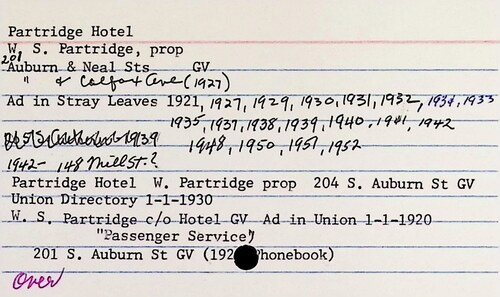 Partridge Hotel
W. S. Partridge, prop
201
Auburn & Neal Sts GV
" & Colfax Ave (1927)
Ad in Stray Leaves 1921, 1927, 1929, 1930, 1931, 1932, 1931, 1933
1935, 1937, 1938, 1939, 1940, 1941, 1942
1939 1948, 1950, 1951, 1952
1942- 148 Mill St.?
Partridge Hotel W. Partridge prop 204 S. Auburn St GV
Union Directory 1-1-1930
W. S. Partridge c/o Hotel GV Ad in Union 1-1-1920
"Passenger Service"
201 S. Auburn St GV (192 Phonebook)
Over